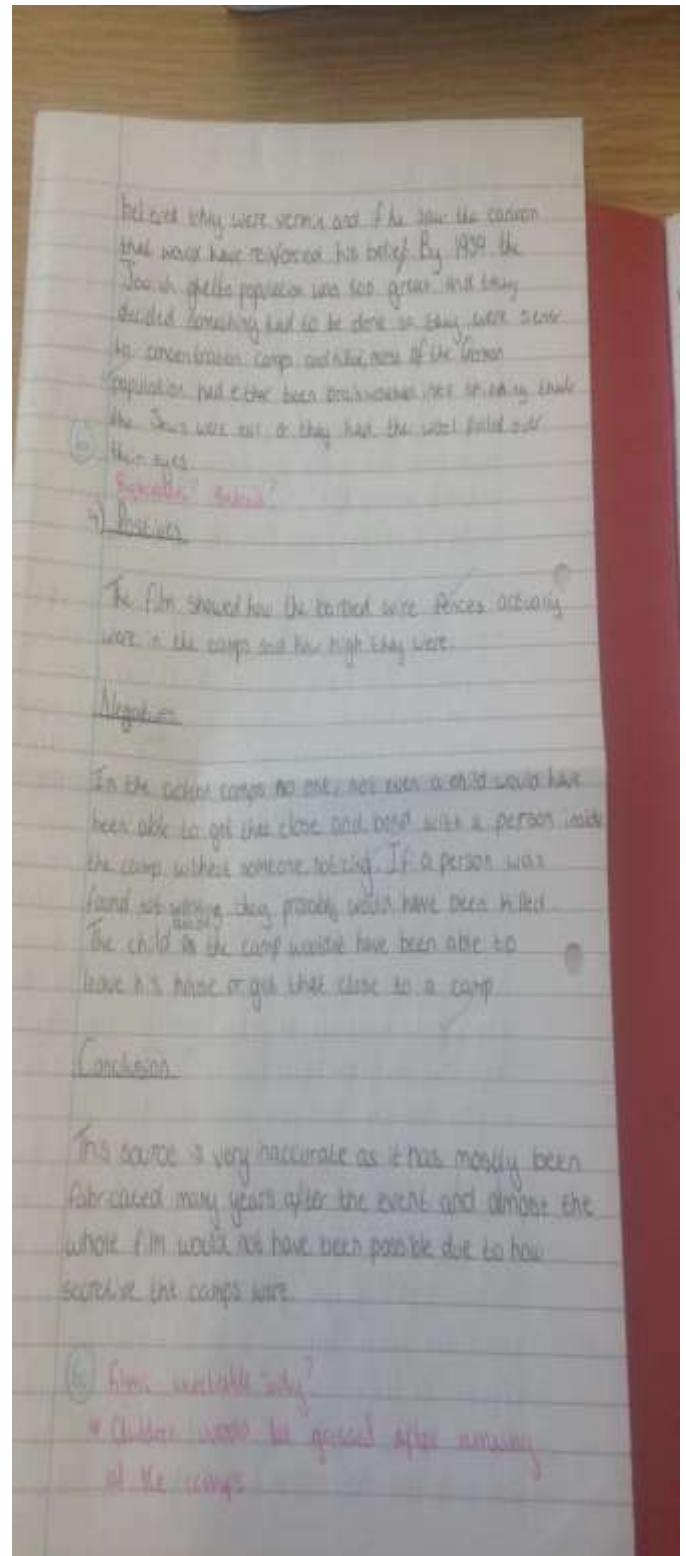 believed they were vermin and if he saw the cartoon
that would have reinforced his belief. By 1939 the
Jewish ghetto population was too great and they
decided something had to be done so they were sent
to concentration camps and killed, most of the German
population had either been brainwashed into thinking that
the Jews were evil or they had the wool pulled over
their eyes.
4) Positives
The film showed how the barbed wire fences actually
were in the camps and how high they were.
Negatives
In the actual camps no one, not even a child would have
been able to get that close and bond with a person inside
the camp without someone noticing. If a person was
found not working they probably would have been killed.
The child the camp wouldnt have been able to
leave his house or get that close to a camp.
Conclusion
This source is very inaccurate as it has mostly been
fabricated many years after the event and almost the
whole film would not have been possible due to how
secretive the camps were.
Film why?
* Children would be gassed after arriving
at the camps